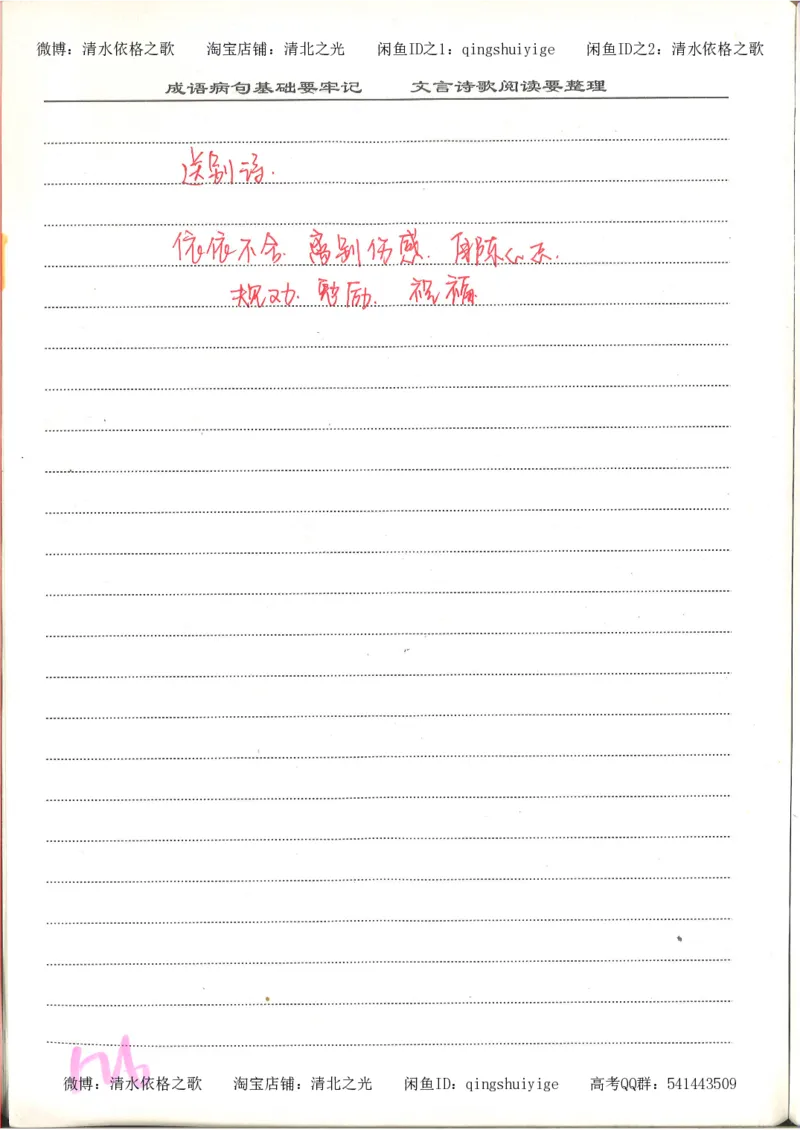 微博：清水依格之歌 淘宝店铺：清北之光 闲鱼ID之1：qingshuiyige 闲鱼ID之2：清水依格之歌
成语病句基础要牢记 文言诗歌阅读要整理
送别诗.
依依不舍. 离别伤感.
规劝. 勉励. 祝福
微博：清水依格之歌 淘宝店铺：清北之光 闲鱼ID：qingshuiyige 高考QQ群：541443509